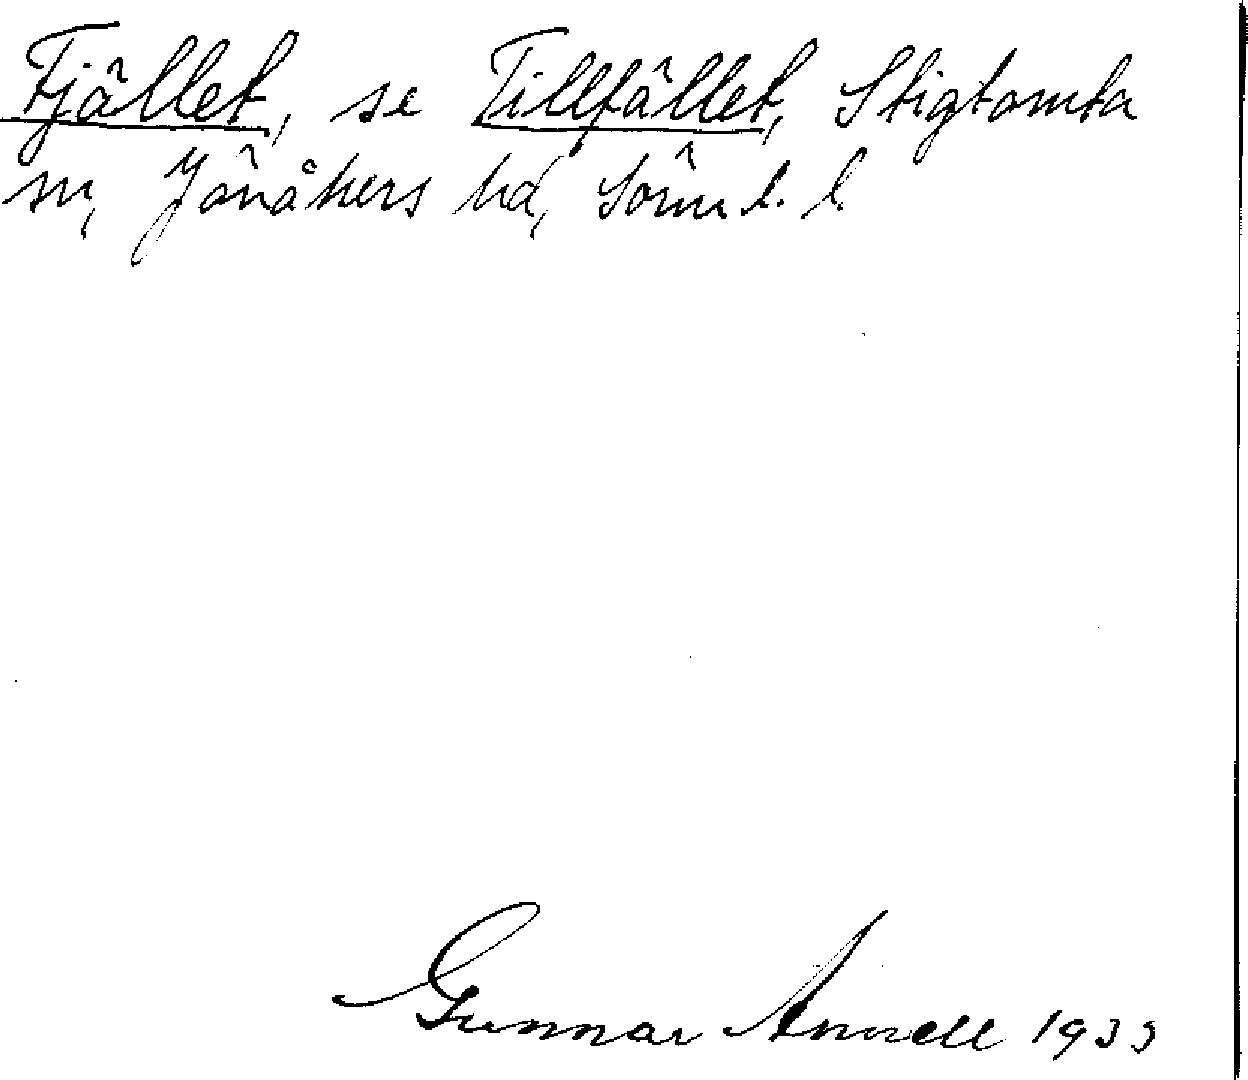 Fjället, se Tillfället, Stigtomta
sn, Jönåkers hd, Sörml. l.
Gunnar Annell 1933